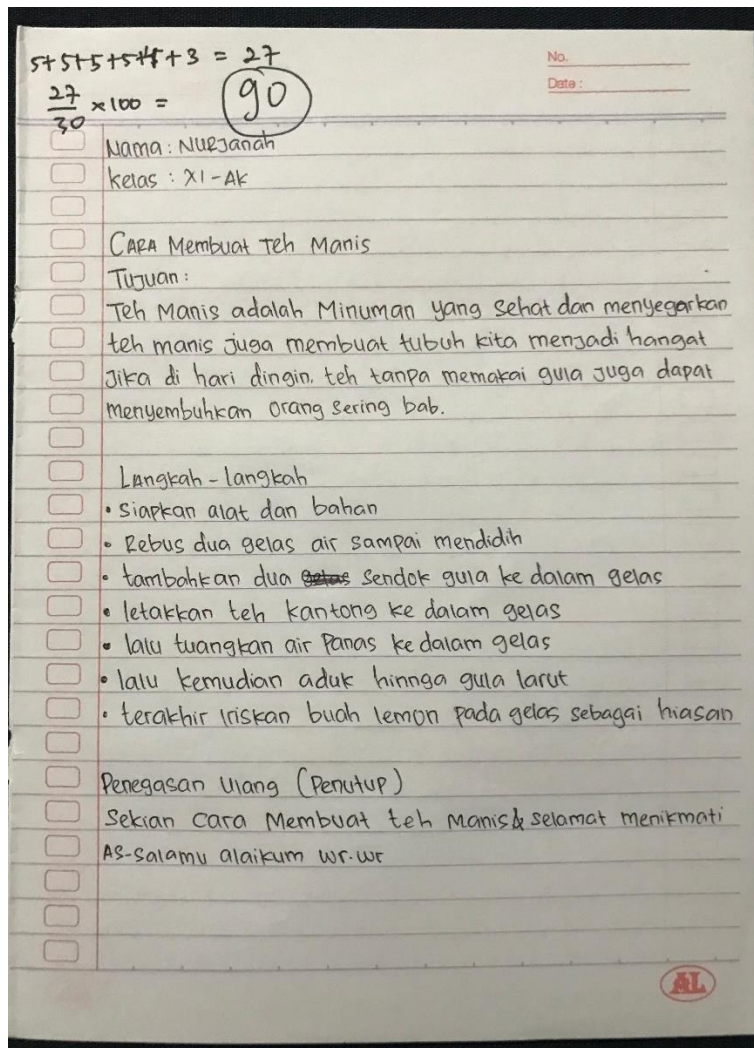 5+5+5+5+4+3 = 27
No.
Date :
27/30 ×100 = 90
Nama : NURJanah
Kelas : XI-AK
CARA Membuat Teh Manis
Tujuan :
Teh Manis adalah Minuman yang sehat dan menyegarkan
teh manis juga membuat tubuh kita menjadi hangat
Jika di hari dingin. teh tanpa memakai gula juga dapat
menyembuhkan orang sering bab.
Langkah - langkah
• Siapkan alat dan bahan
• Rebus dua gelas air sampai mendidih
• tambahkan dua gelas sendok gula ke dalam gelas
• letakkan teh kantong ke dalam gelas
• lalu tuangkan air Panas ke dalam gelas
• lalu kemudian aduk hinnga gula larut
• terakhir iriskan buah lemon pada gelas sebagai hiasan
Penegasan Ulang (Penutup)
Sekian Cara Membuat teh Manis & selamat menikmati
AS-Salamu alaikum wr.wr
AL